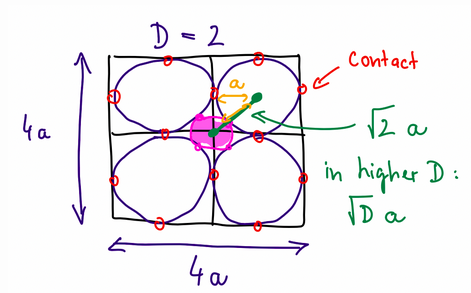 D = 2
contact
a
4a
√2 a
in higher D:
√D a
4a